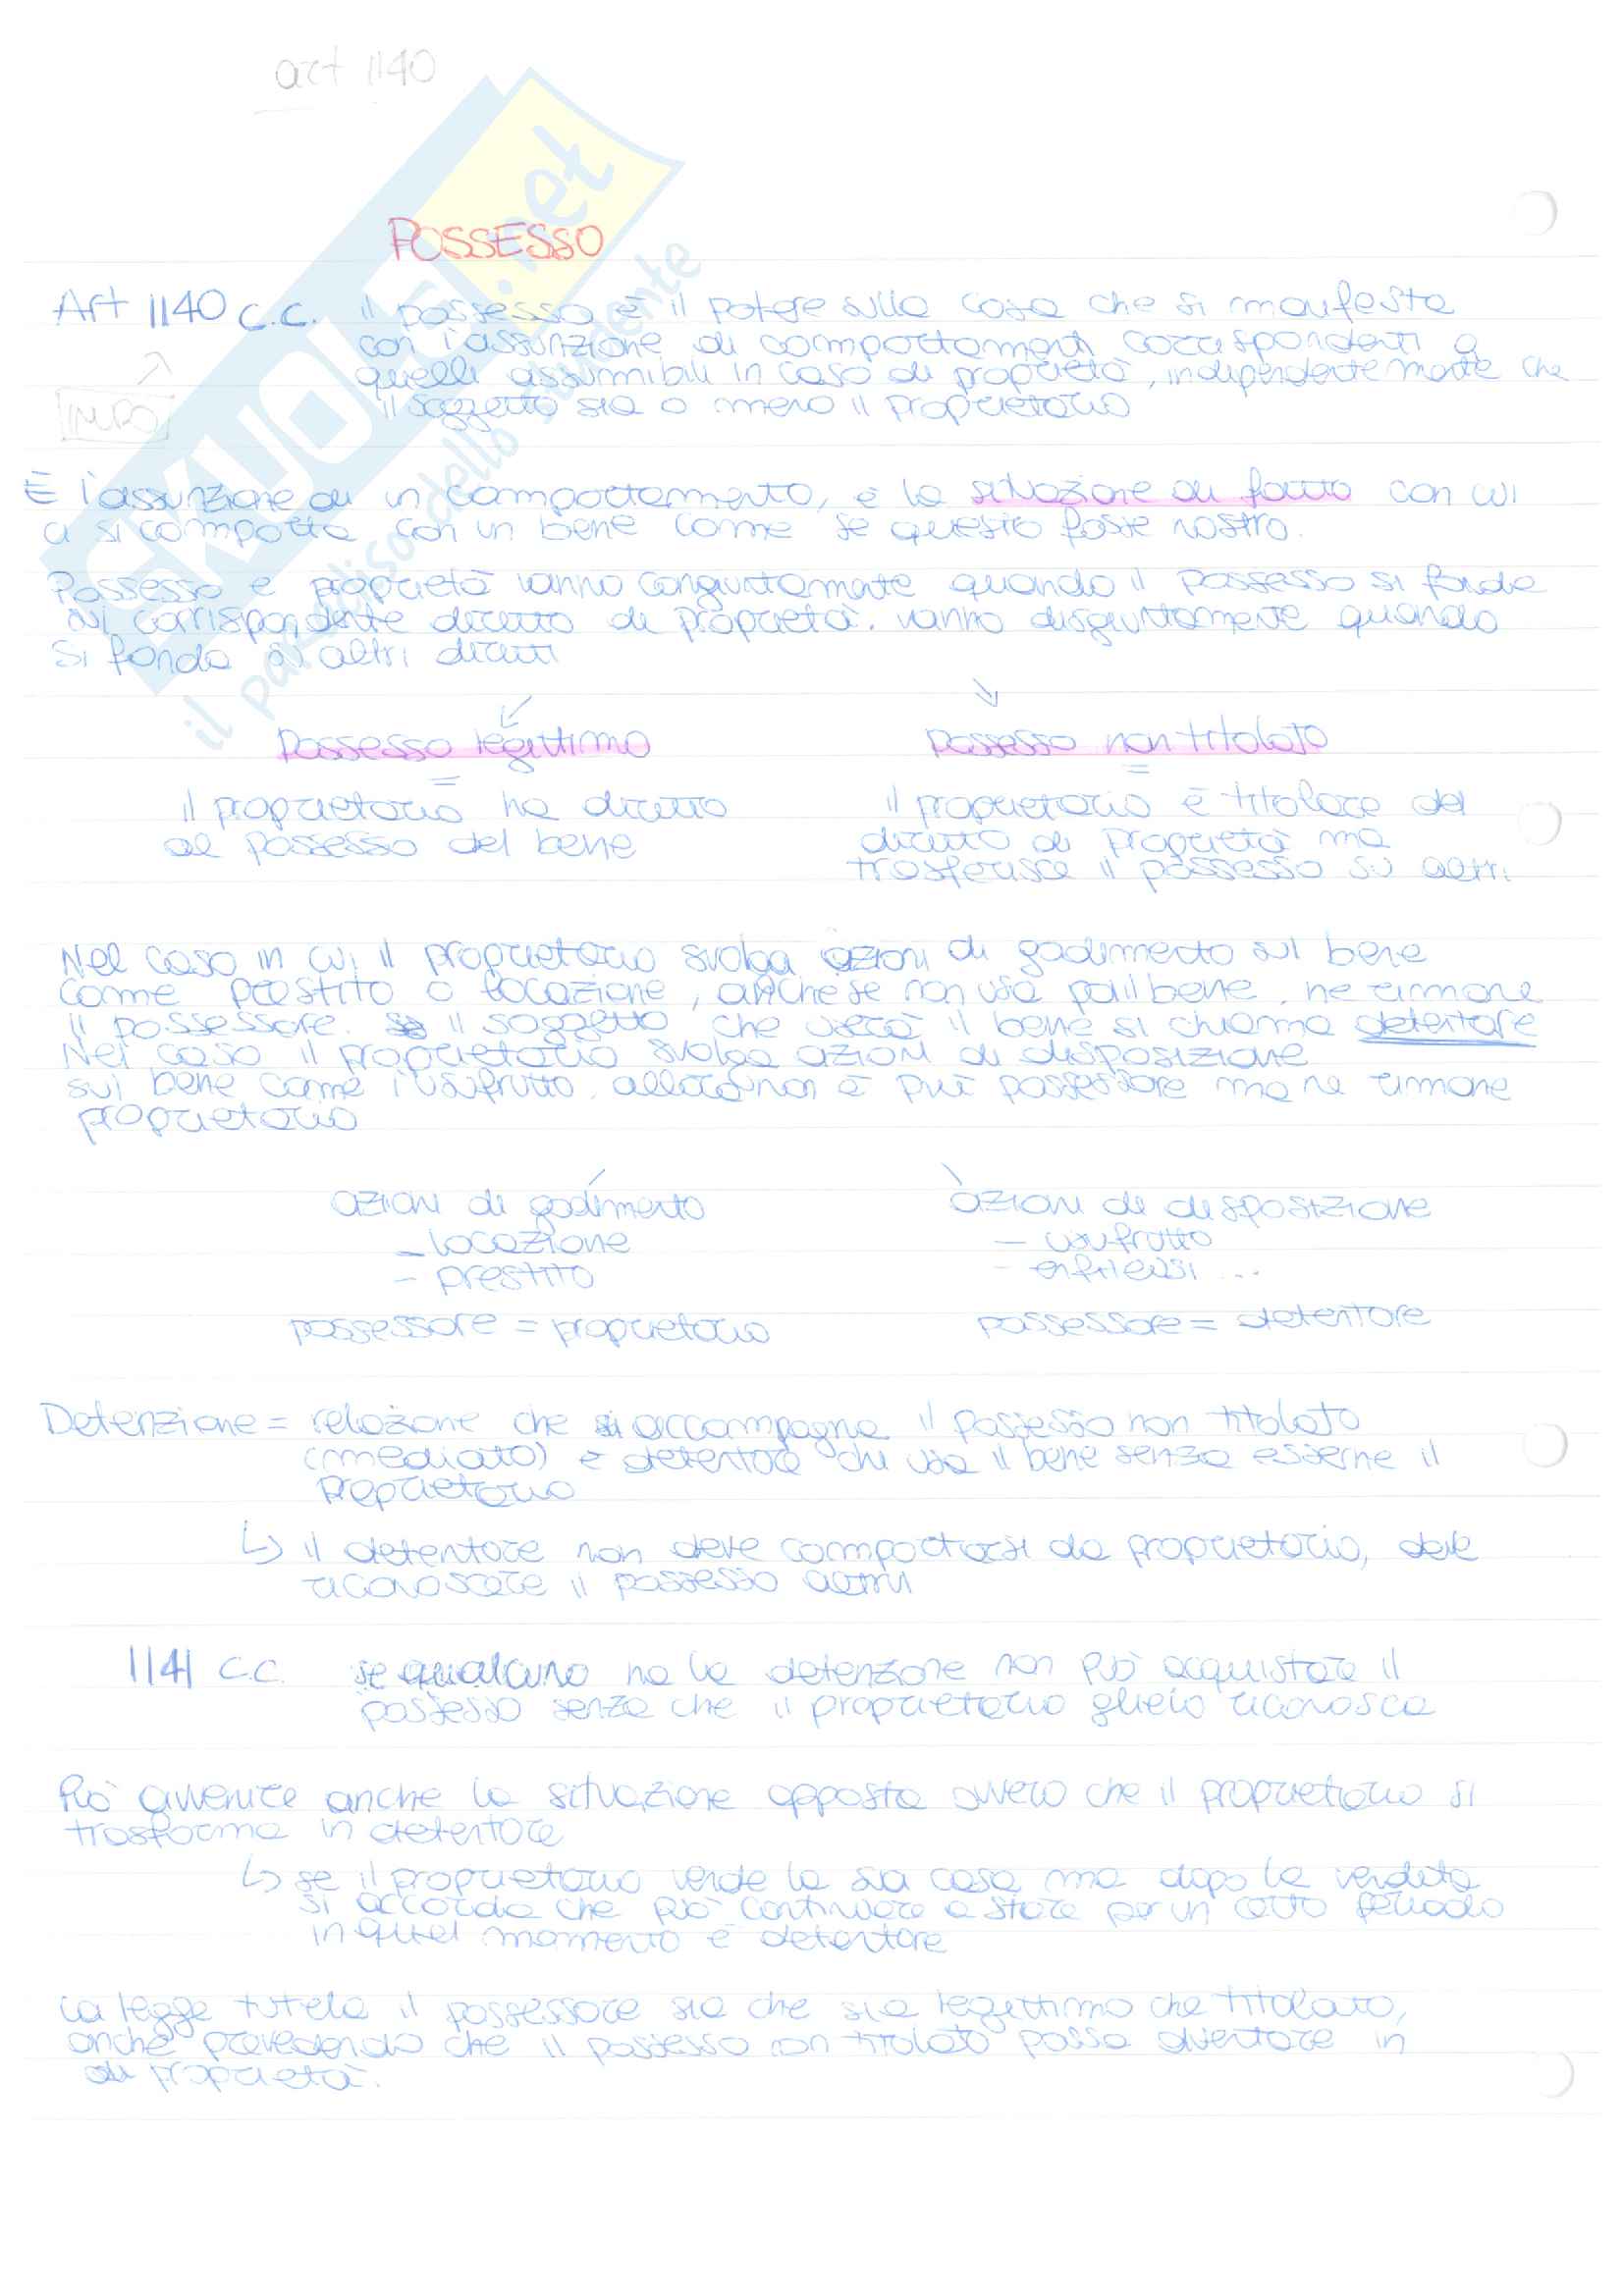 art 1140
POSSESSO
Art 1140 c.c. il possesso è il potere sulla cosa che si manifesta
con l'assunzione di comportamenti corrispondenti a
quelli assumibili in caso di proprietà, indipendentemente che
il soggetto sia o meno il proprietario
È l'assunzione di un comportamento, è la situazione di fatto con cui
ci si comporta con un bene come se questo fosse nostro.
Possesso e proprietà vanno congiuntamente quando il possesso si fonde
sul corrispondente diritto di proprietà. vanno disgiuntamente quando
si fonda su altri diritti
Possesso legittimo
Possesso non titolato
=
=
il proprietario ha diritto
al possesso del bene
il proprietario è titolare del
diritto di proprietà ma
trasferisce il possesso su altri.
Nel caso in cui il proprietario svolga azioni di godimento sul bene
come prestito o locazione, anche se non usa poi il bene, ne rimane
il possessore. il soggetto che userà il bene si chiama detentore
Nel caso il proprietario svolga azioni di disposizione
sul bene come l'usufrutto, allora non è più possessore ma ne rimane
proprietario
azioni di godimento
- locazione
- prestito
possessore = proprietario
azioni di disposizione
- usufrutto
- enfiteusi ...
possessore = detentore
Detenzione = relazione che si accompagna il possesso non titolato
(mediato) è detentore chi usa il bene senza esserne il
proprietario
↳ il detentore non deve comportarsi da proprietario, deve
riconoscere il possesso altrui
1141 c.c. se qualcuno ha la detenzione non può acquistare il
possesso senza che il proprietario glielo riconosca
Può avvenire anche la situazione opposta ovvero che il proprietario si
trasforma in detentore
↳ se il proprietario vende la sua casa ma dopo la vendita
si accorda che può continuare a stare per un certo periodo
in quel momento è detentore
La legge tutela il possessore sia che sia legittimo che titolato,
anche prevedendo che il possesso non titolato possa diventare in
di proprietà.
SKUOLA.net
il paradiso dello studente